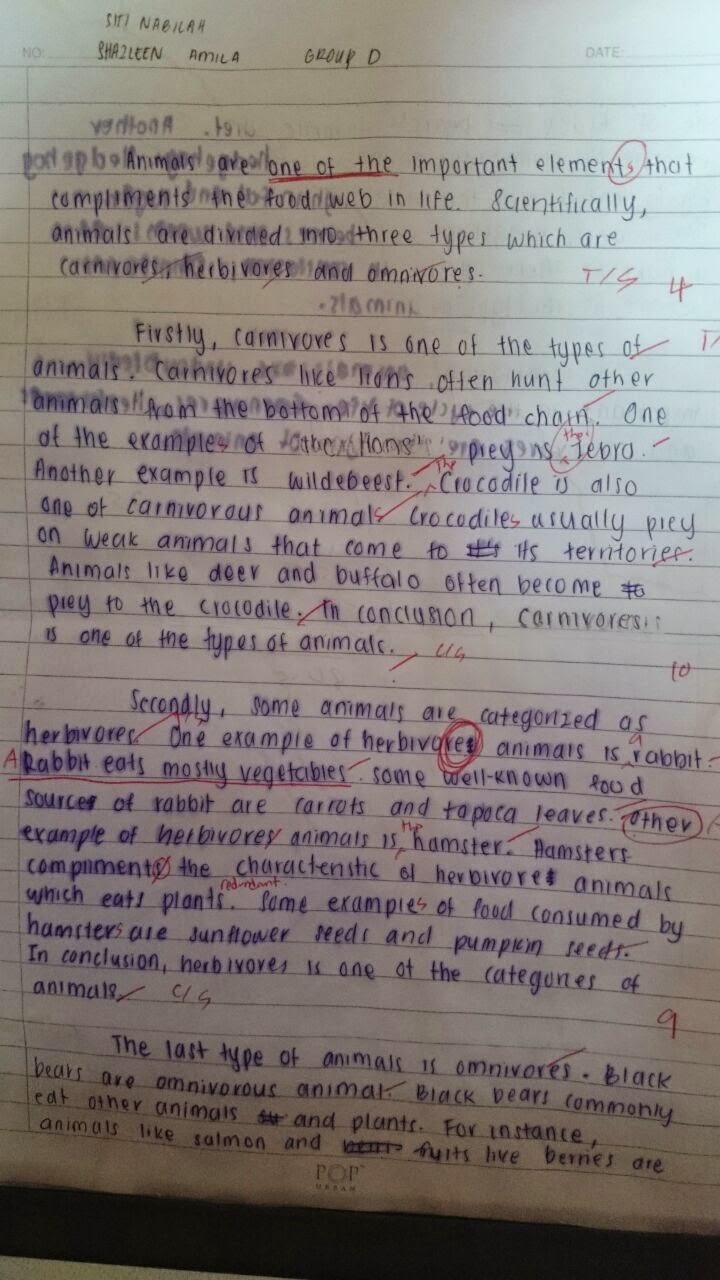 SITI NABILAH
NO: SHAZLEEN AMILA GROUP D DATE:
Animals are one of the important elements that
compliments the food web in life. Scientifically,
animals are divided into three types which are
carnivores, herbivores and omnivores. T/S 4
Firstly, carnivores is one of the types of
animals. Carnivores like lions often hunt other
animals from the bottom of the food chain. One
of the examples of the lions' prey is the zebra.
Another example is wildebeest. The Crocodile is also
one of carnivorous animals. Crocodiles usually prey
on weak animals that come to its territories.
Animals like deer and buffalo often become
prey to the crocodile. In conclusion, carnivores
is one of the types of animals. C/S
10
Secondly, some animals are categorized as
herbivores. One example of herbivores animals is a rabbit.
A Rabbit eats mostly vegetables. Some well-known food
sources of rabbit are carrots and tapoca leaves. Other
example of herbivores animals is the hamster. Hamsters
compliments the characteristic of herbivores animals
which eats plants. redundant. Some examples of food consumed by
hamsters are sunflower seeds and pumpkin seeds.
In conclusion, herbivores is one of the categories of
animals. C/S
9
The last type of animals is omnivores. Black
bears are omnivorous animal. Black bears commonly
eat other animals and plants. For instance,
animals like salmon and fruits like berries are
POP
URBAN